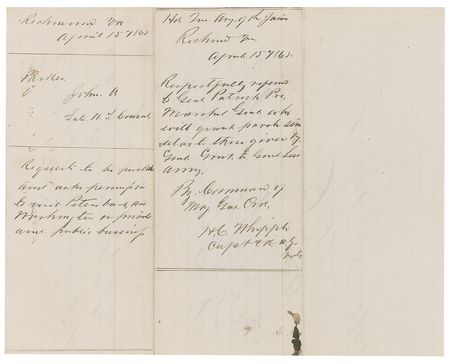 Richmond Va
April 15th 1865
Parker
John A
Late U S Consul
Requests to be paroled
and asks permission
to visit Petersburg and
Washington on private
and public business
Hd Qrs Army of the James
Richmond Va
April 15th 1865
Respectfully referred
to Genl Patrick Pro
Marshal Genl who
will grant parole sim
ilar to those given by
Genl Grant to Genl Lees
army.
By Command of
Maj Gen. Ord,
H.C. Whipple
Capt & A A G